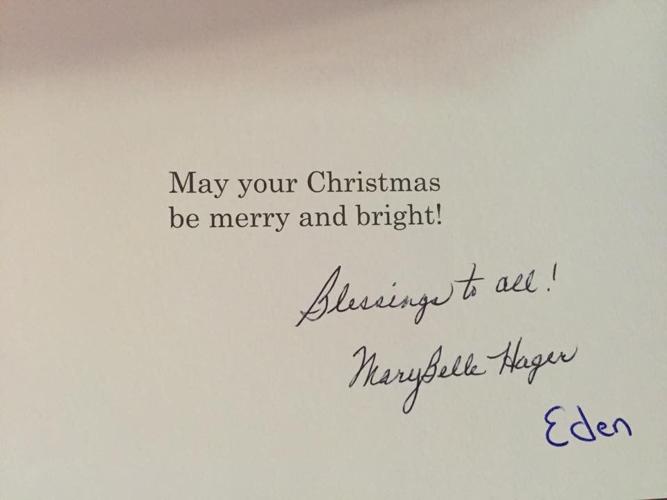 May your Christmas
be merry and bright!
Blessings to all!
MaryBelle Hager
Eden